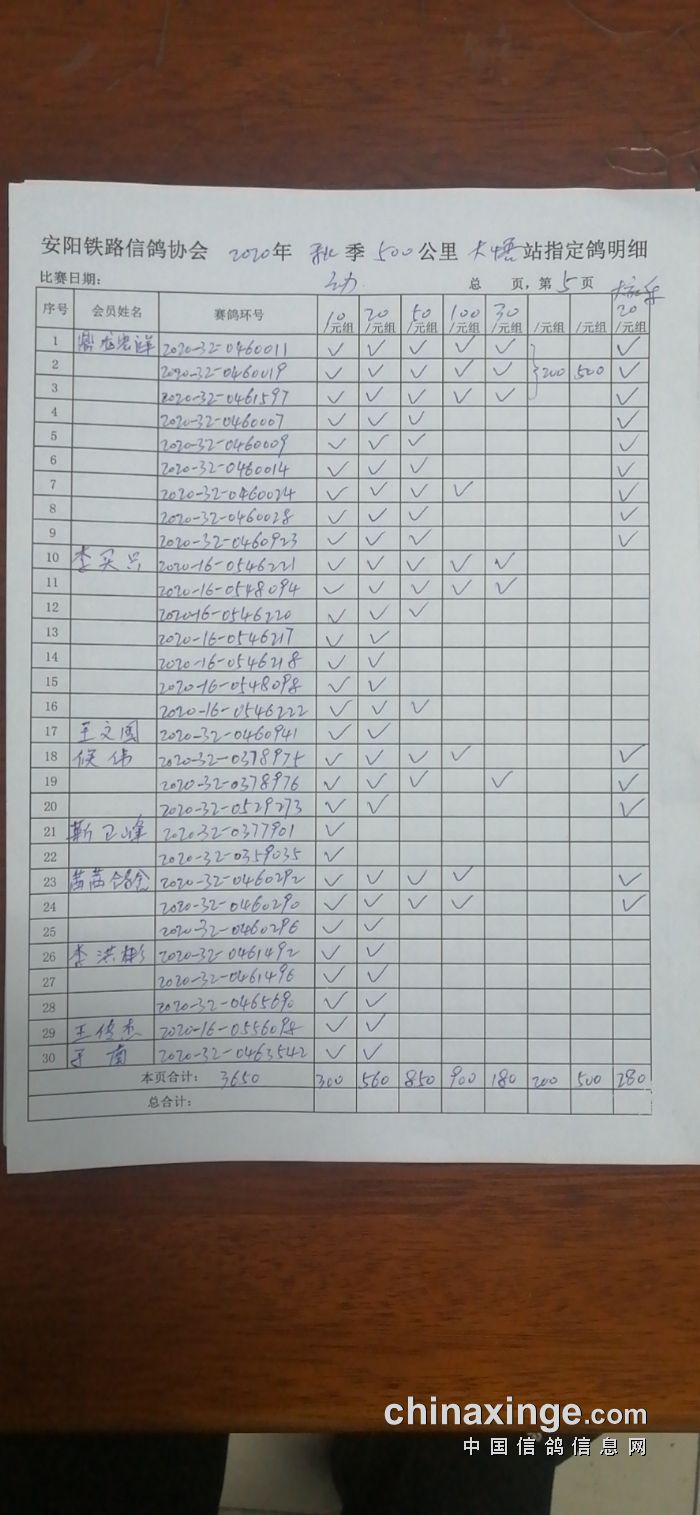 安阳铁路信鸽协会 2020年 秋 季 500公里 大悟 站指定鸽明细
比赛日期: 总 页,第 5 页
序号 会员姓名 赛鸽环号 10/元组 20/元组 50/元组 100/元组 30/元组 /元组 /元组 20/元组
1 2020-32-0460011 ✓ ✓ ✓ ✓ ✓ ✓
2 2020-32-0460019 ✓ ✓ ✓ ✓ ✓ 200 500 ✓
3 2020-32-0461597 ✓ ✓ ✓ ✓ ✓ ✓
4 2020-32-0460007 ✓ ✓ ✓ ✓
5 2020-32-0460009 ✓ ✓ ✓ ✓
6 2020-32-0460014 ✓ ✓ ✓ ✓
7 2020-32-0460024 ✓ ✓ ✓ ✓ ✓
8 2020-32-0460028 ✓ ✓ ✓ ✓
9 2020-32-0460923 ✓ ✓ ✓ ✓
10 李买兴 2020-16-0546221 ✓ ✓ ✓ ✓ ✓
11 2020-16-0548094 ✓ ✓ ✓ ✓ ✓
12 2020-16-0546220 ✓ ✓ ✓
13 2020-16-0546217 ✓ ✓
14 2020-16-0546218 ✓ ✓
15 2020-16-0548098 ✓ ✓
16 2020-16-0546222 ✓ ✓ ✓
17 王文周 2020-32-0460941 ✓ ✓
18 侯伟 2020-32-0378975 ✓ ✓ ✓ ✓ ✓
19 2020-32-0378976 ✓ ✓ ✓ ✓ ✓
20 2020-32-0529273 ✓ ✓ ✓
21 靳卫峰 2020-32-0377901 ✓
22 2020-32-0359035 ✓
23 茜茜鸽舍 2020-32-0460292 ✓ ✓ ✓ ✓ ✓
24 2020-32-0460290 ✓ ✓ ✓ ✓ ✓
25 2020-32-0460296 ✓ ✓
26 李洪彬 2020-32-0461492 ✓ ✓
27 2020-32-0461496 ✓ ✓
28 2020-32-0465690 ✓ ✓
29 王俊杰 2020-16-0556098 ✓ ✓
30 南 2020-32-0463542 ✓ ✓
本页合计: 3650 300 560 850 900 180 200 500 280
总合计:
chinaxinge.com
中国信鸽信息网